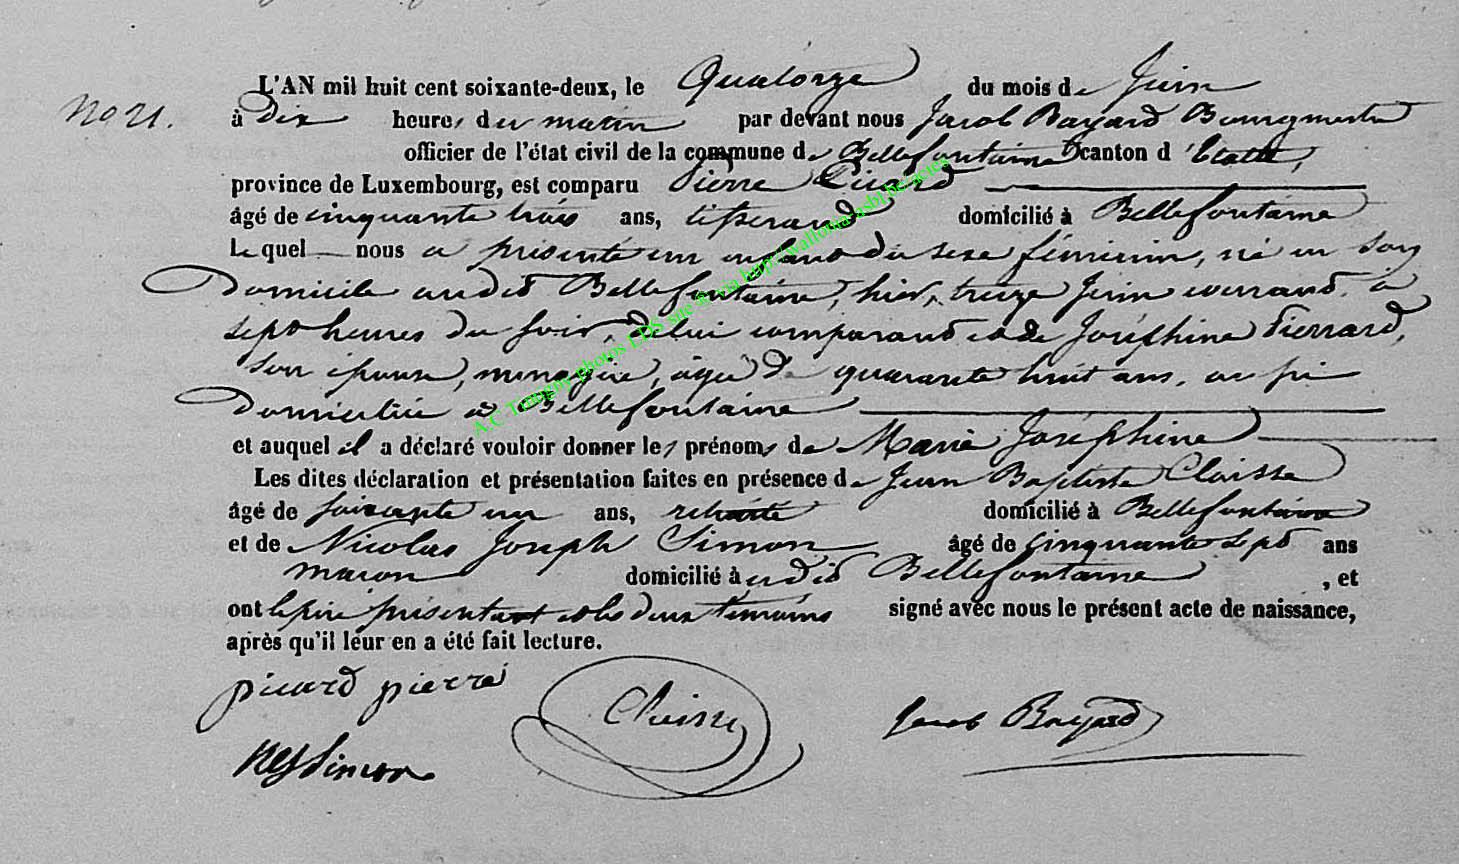 No 21.
L'AN mil huit cent soixante-deux, le Quatorze du mois de Juin
à Dix heures du matin par devant nous Jacob Bayard Bourgmestre
officier de l'état civil de la commune de Bellefontaine canton d'Etalle,
province de Luxembourg, est comparu Pierre Picard
âgé de cinquante trois ans, tisserand domicilié à Bellefontaine
Lequel nous a présenté un enfant du sexe féminin, né en son
Domicile audit Bellefontaine, hier, treize Juin courant à
sept heures du soir, de lui comparant et de Joséphine Pierrard,
son épouse, menagère, agée de quarante huit ans, aussi
Domiciliée à Bellefontaine
et auquel il a déclaré vouloir donner les prénoms de Marie Joséphine
Les dites déclaration et présentation faites en présence de Jean Baptiste Claisse
âgé de soixante un ans, retraité domicilié à Bellefontaine
et de Nicolas Joseph Simon âgé de cinquante sept ans
macon domicilié à udit Bellefontaine , et
ont le père présentant et les deux témoins signé avec nous le présent acte de naissance,
après qu'il leur en a été fait lecture.
picard pierre Claisse Jacob Bayard
NJ Simon
A.C Tintigny photos LDS sue & via http://wallonia-asbl.be/actes